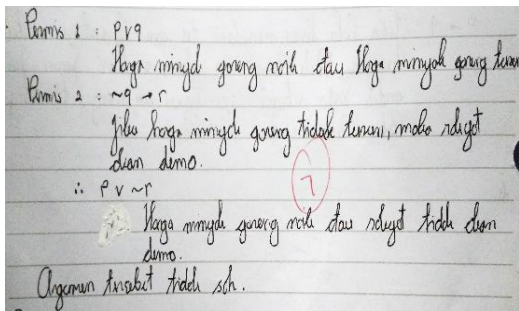 Premis 1 : p v q
Harga minyak goreng naik atau Harga minyak goreng turun
Premis 2 : ~q → r
Jika harga minyak goreng tidak turun, maka rakyat
akan demo.
7
∴ p v ~r
Harga minyak goreng naik atau rakyat tidak akan
demo.
Argumen tersebut tidak sah.